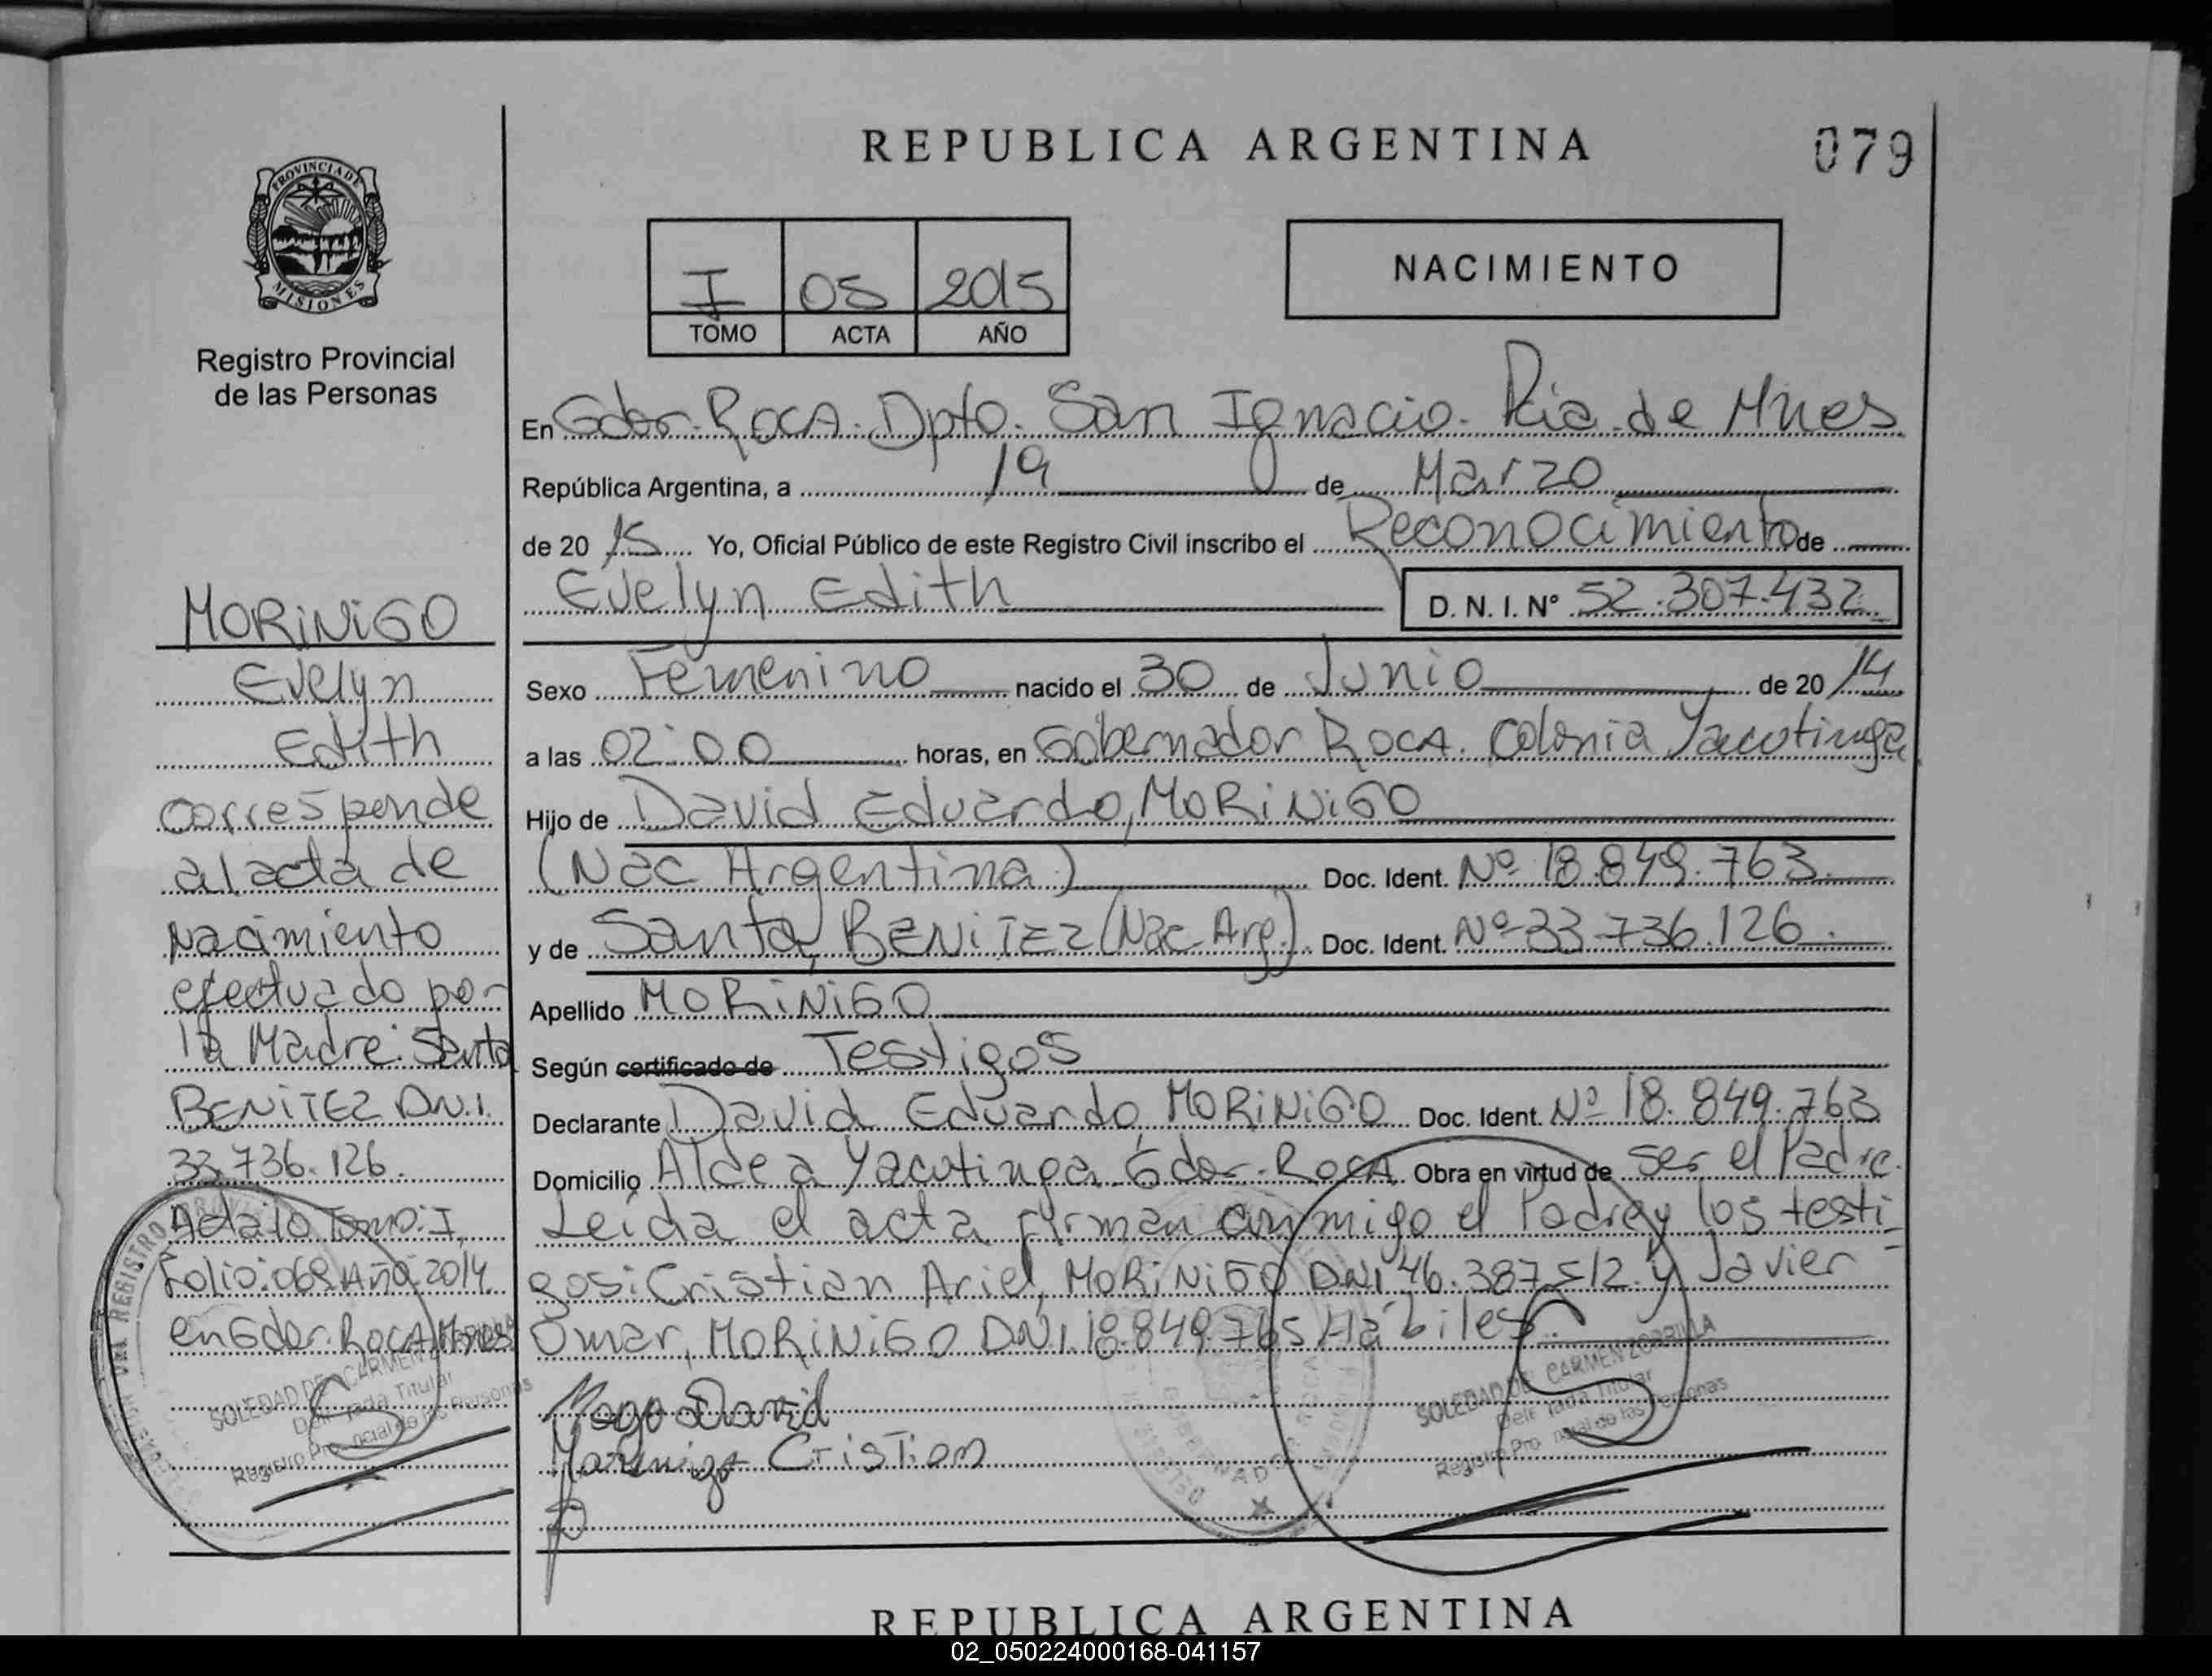 REPUBLICA ARGENTINA
079
PROVINCIA DE
MISIONES
Registro Provincial
de las Personas
I 05 2015
TOMO ACTA AÑO
NACIMIENTO
En Gdor. Roca. Dpto. San Ignacio. Pcia. de Mnes
República Argentina, a 19 de Marzo
de 20 15 Yo, Oficial Público de este Registro Civil inscribo el Reconocimiento de
Evelyn Edith D. N. I. Nº 52.307.432
Sexo Femenino nacido el 30 de Junio de 20 14
a las 02:00 horas, en Gobernador Roca. Colonia Yacutinga
Hijo de David Eduardo, MORINIGO
(Nac Argentina) Doc. Ident. Nº 18.849.763
y de Santa, BENITEZ (Nac. Arg.) Doc. Ident. Nº 33.736.126.
Apellido MORINIGO
Según certificado de Testigos
Declarante David Eduardo, MORINIGO Doc. Ident. Nº 18.849.763
Domicilio Aldea Yacutinga Gdor. Roca Obra en virtud de ser el Padre.
Leída el acta firman conmigo el Padre y los testi-
gos: Cristian Ariel, MORINIGO DNI 46.387.512 y Javier
Omar, MORINIGO DNI. 18.849.765 Hábiles
David
Cristian
SOLEDAD DE CARMEN ZORRILLA
Delegada Titular
Registro Provincial de las Personas
MORINIGO
Evelyn
Edith
corresponde
al acta de
Nacimiento
efectuado por
la Madre: Santa
BENITEZ D.N.I.
33.736.126.
Acta 10 Tomo: I
Folio: 068 Año 2014
en Gdor. Roca Mnes
SOLEDAD DE CARMEN
Delegada Titular
Registro Provincial de las Personas
REPUBLICA ARGENTINA
02_050224000168-041157